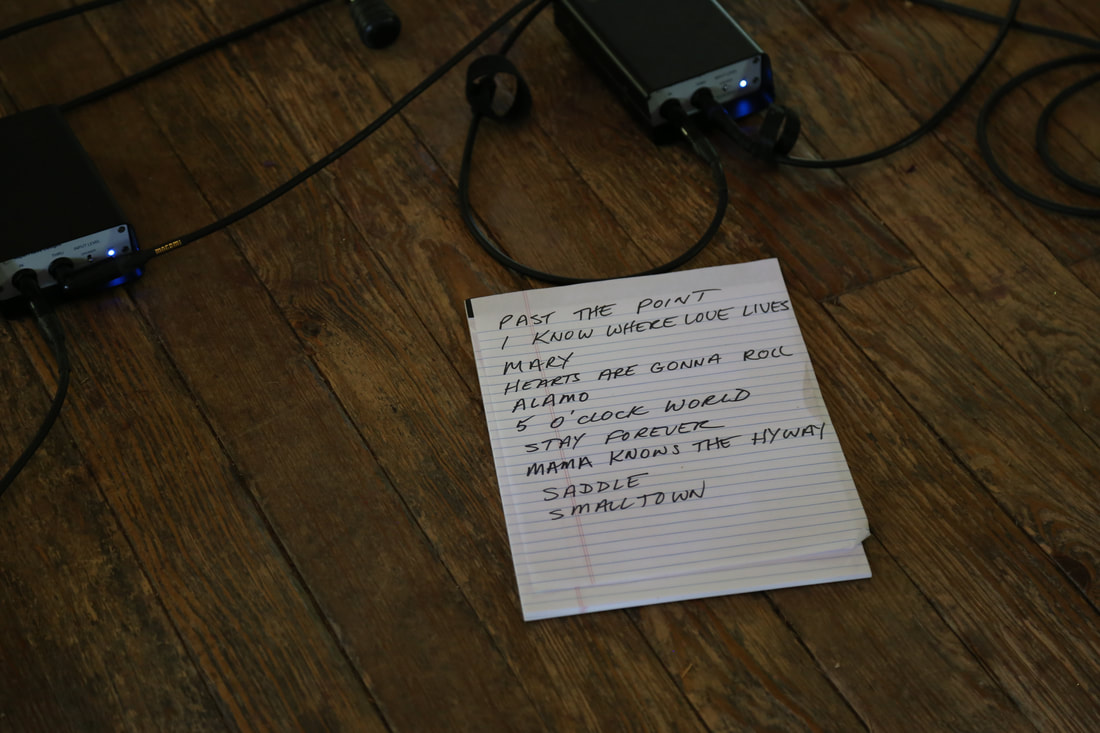 PAST THE POINT
I KNOW WHERE LOVE LIVES
MARY
HEARTS ARE GONNA ROLL
ALAMO
5 O'CLOCK WORLD
STAY FOREVER
MAMA KNOWS THE HYWAY
SADDLE
SMALLTOWN
INPUT LEVEL
MOGAMI